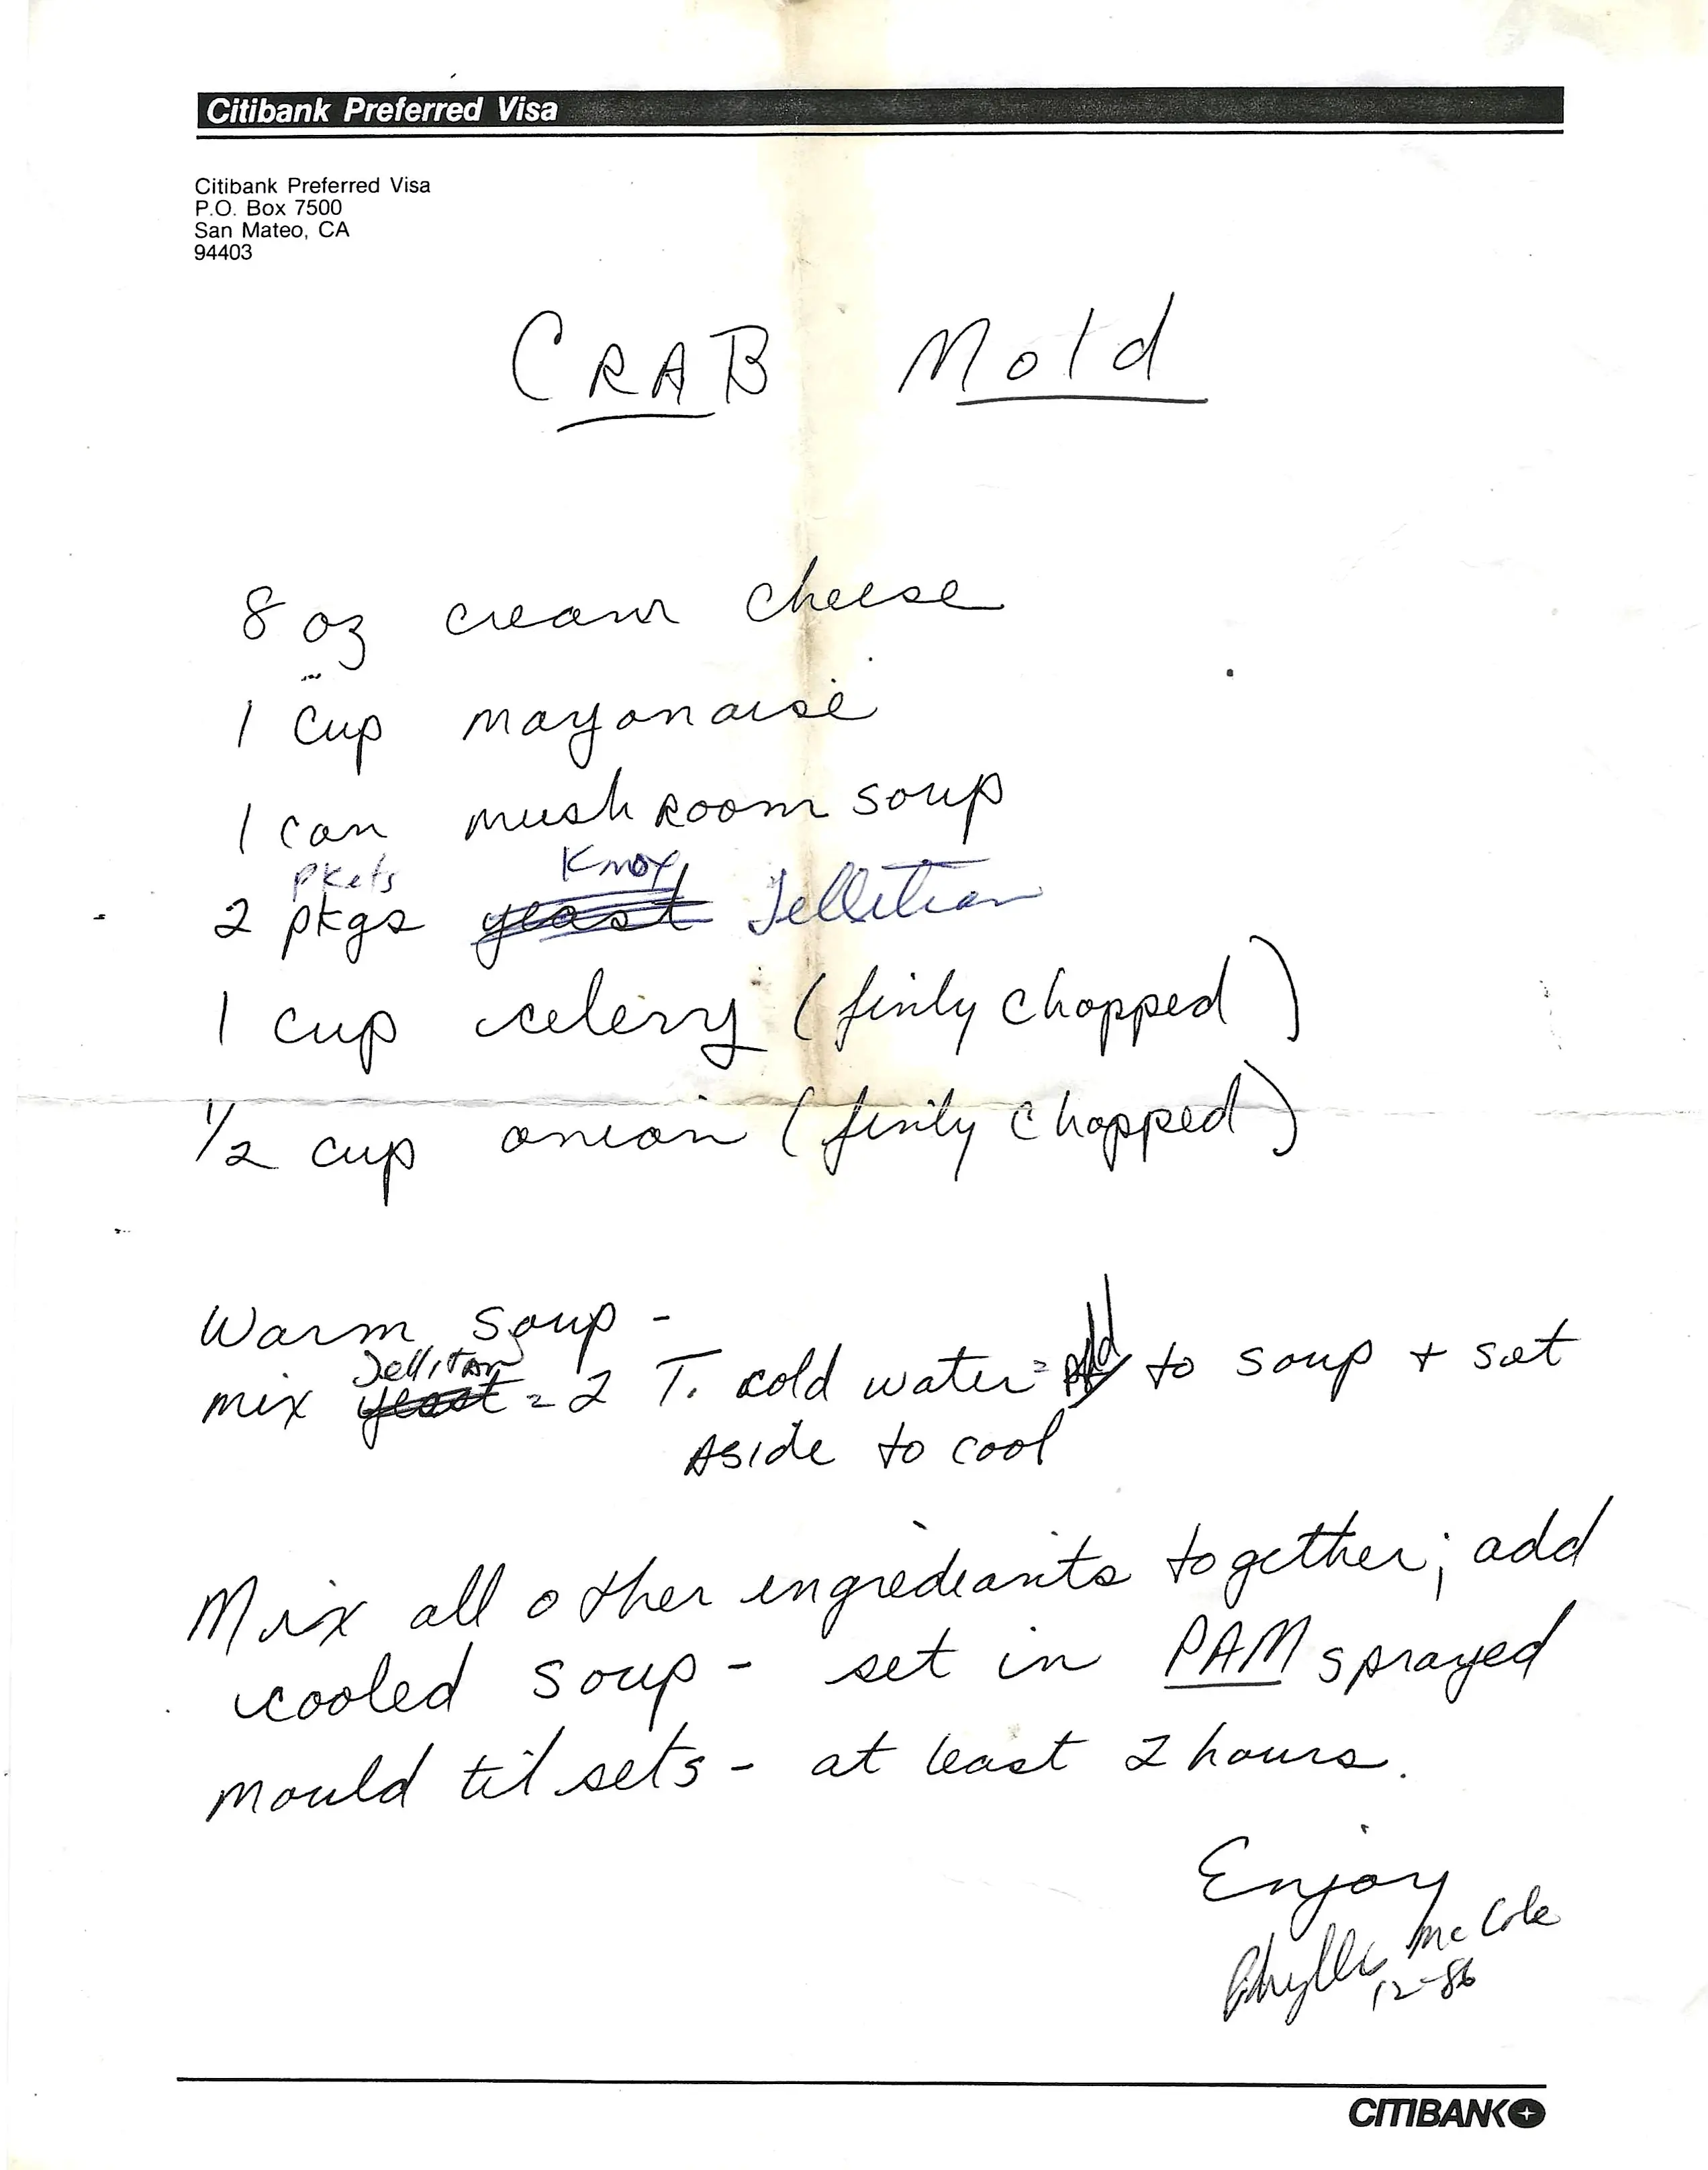 Citibank Preferred Visa
Citibank Preferred Visa
P.O. Box 7500
San Mateo, CA
94403
CRAB Mold
8 oz cream cheese
1 Cup mayonaise
1 can mushroom soup
pkets Knox
2 pkgs yeast Jelletian
1 cup celery (finly chopped)
1/2 cup onion (finly chopped)
Warm soup -
Jellitan
mix yeast = 2 T. cold water = add to soup + set
Aside to cool
Mix all other ingrediants together; add
cooled soup - set in PAM sprayed
mould til sets - at least 2 hours.
Enjoy
Phyllis McCole
12-86
CITIBANK